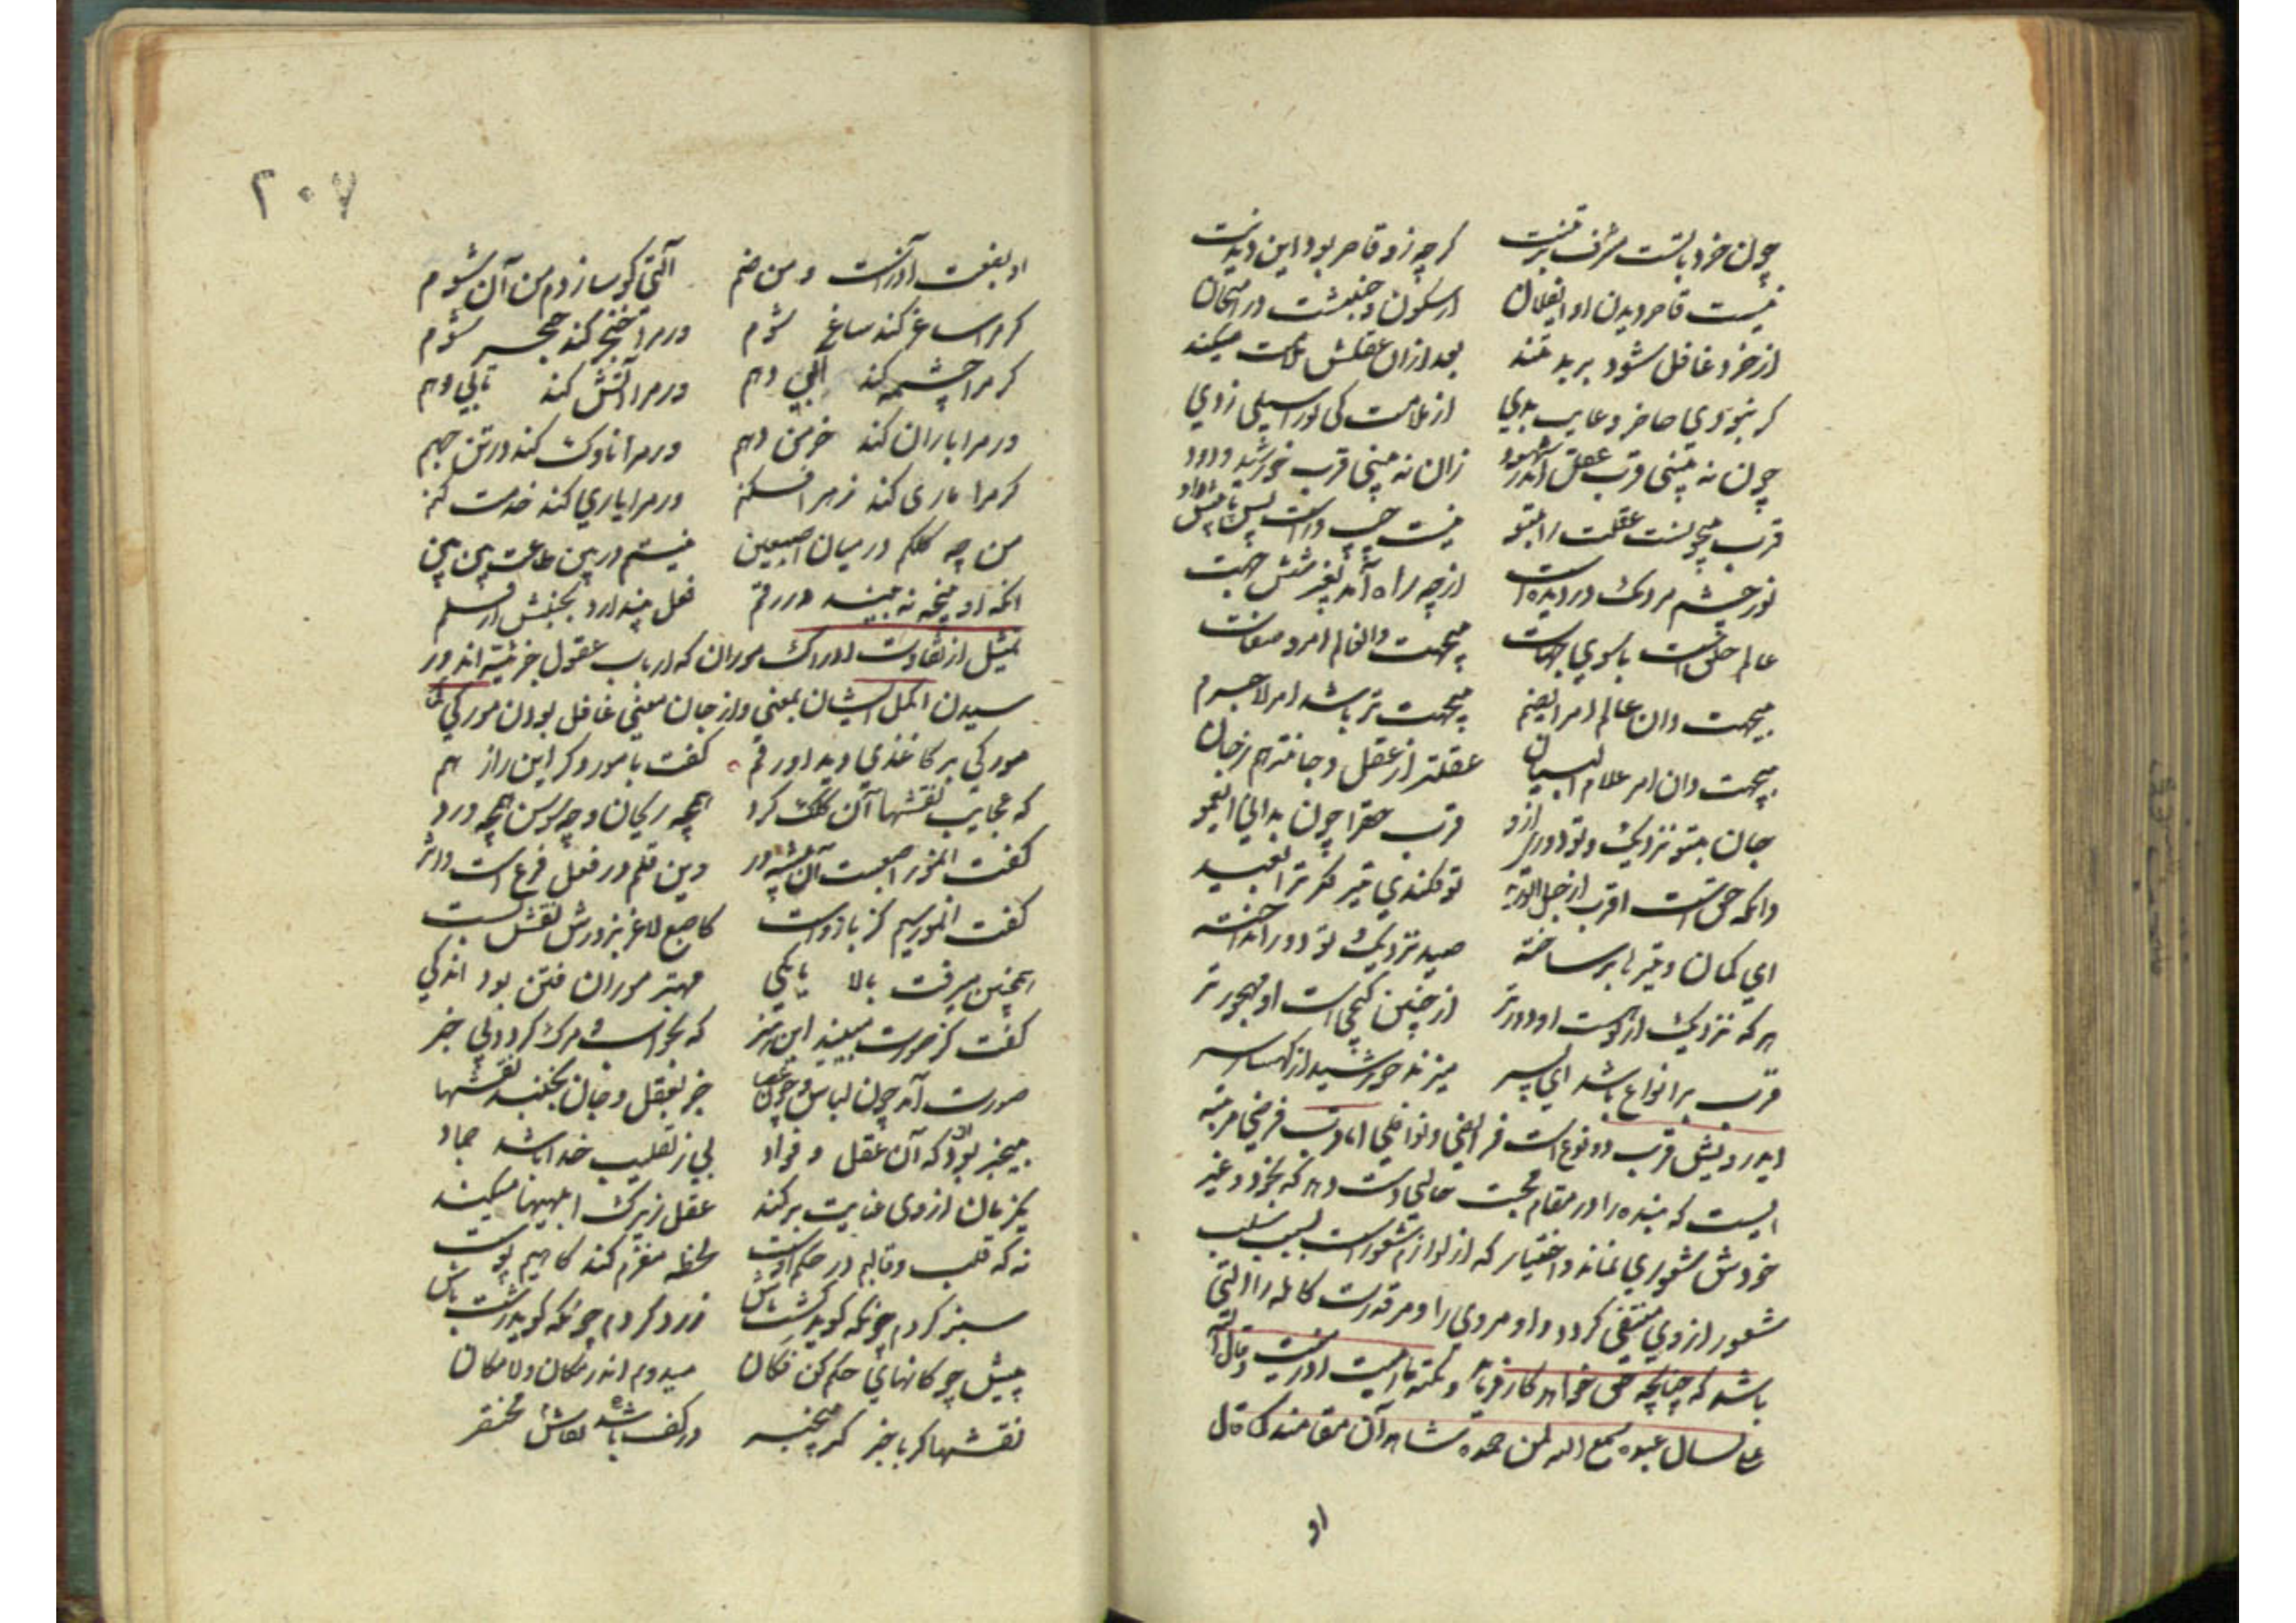 چون خرد با تست مشرف بر تنت گرچه زو قاصر بود این دیدنت
نیست قاصر دیدن او ای فلان از سکون و جنبشت در امتحان
از خرد غافل شود بر بد تند بعد ازان عقلش ملامت میکند
گر نبودي حاضر و غایب بدي از ملامت کی ترا سیلی زدي
چون نه بینی قرب عقل اندر شهود زان نه بینی قرب خورشید وجود
قرب بیچونست عقلت را بتو نیست چپ و راست پس یا پیش او
نور چشم مردمک در دیده است از چه راه آمد بغیر شش جهت
عالم خلق است باسوي جهات بیجهت دان عالم امر و صفات
بیجهت دان عالم امر ای صنم بیجهت تر باشد امر لاجرم
بیجهت دان امر علام البیان عقلتر از عقل و جانتر هم ز جان
جان بتو نزدیک و تو دوري ازو قرب حقرا چون بدانی ای عمو
وانکه حق است اقرب از حبل الورید تو فکندي تیر فکرت را بعید
اي کمان و تیرها بر ساخته صید نزدیک و تو دور انداخته
هر که نزدیک از اوست او دورتر از چنین گنجی است او مهجورتر
قرب بر انواع باشد اي پسر میزند خورشید از کهسار سر
ایدرویش قرب دو نوع است فرایضی و نوافلی اما قرب فرضی مرتبه
ایست که بنده را در مقام محبت حالتی دست دهد که بخود و غیر
خودش شعوري نماند و اختیار که از لوازم شعور است بسبب سلب
شعور از وي منتفی گردد و او مر وی را و مر قدرت کامله را آلتی
باشد که چنانچه حق خواهد کار فرماید و نکته ما رمیت اذ رمیت و قال الله
علی لسان عبده سمع الله لمن حمده شاهد آن مقامند کما قال
او
۲۰۷
او بصنعت آزرست و من صنم آلتی کو سازدم من آن شوم
گر مرا ساغر کند ساغر شوم ور مرا خنجر کند خنجر شوم
گر مرا چشمه کند آبی دهم ور مرا آتش کند تابی دهم
ور مرا باران کند خرمن دهم ور مرا ناوک کند در تن جهم
گر مرا ماری کند زهر افکنم ور مرا یاري کند خدمت کنم
من چو کلکم در میان اصبعین نیستم در صف طاعت بین بین
آنکه او پنجه نه بیند در رقم فعل پندارد بجنبش از قلم
تمثیل از تفاوت ادراک موران که ارباب عقول جزئیه اند و ر
سیدن اکمل ایشان بمعنی و از جان معنی غافل بودن مورکی
مورکی بر کاغذي دید او رقم گفت با مور دگر این راز هم
که عجایب نقشها آن کلک کرد همچو ریحان و چو سوسن همچو ورد
گفت آن مور اصبعست آن پیشه ور وین قلم در فعل فرع است و اثر
گفت آن مور سیم کز بازوست کاصبع لاغر بزورش نقش بست
همچنین میرفت بالا تا یکی مهتر موران فتن بود اندکی
گفت کز صورت مبینید این هنر که بخواب و مرگ گردد بی خبر
صورت آمد چون لباس و چون عصا جز بعقل و جان نجنبد نقشها
بیخبر بود او که آن عقل و فواد بی ز تقلیب خدا باشد جماد
یکزمان از وی عنایت برکند عقل زیرک ابلهیها میکند
نه که قلب و قالبم در حکم اوست لحظه مغزم کند گاهیم پوست
سبز گردم چونکه گوید کشت باش زرد گردم چونکه گوید زشت باش
پیش چوگانهاي حکم کن فکان میدوم اندر مکان و لامکان
نقشها گر باخبر گر بیخبر در کف نقاش باشد محتضر